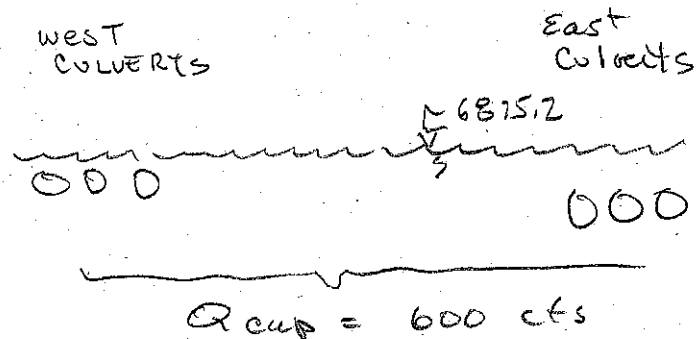 WEST
CULVERTS
East
Culverts
6875.2
Q cap = 600 cfs